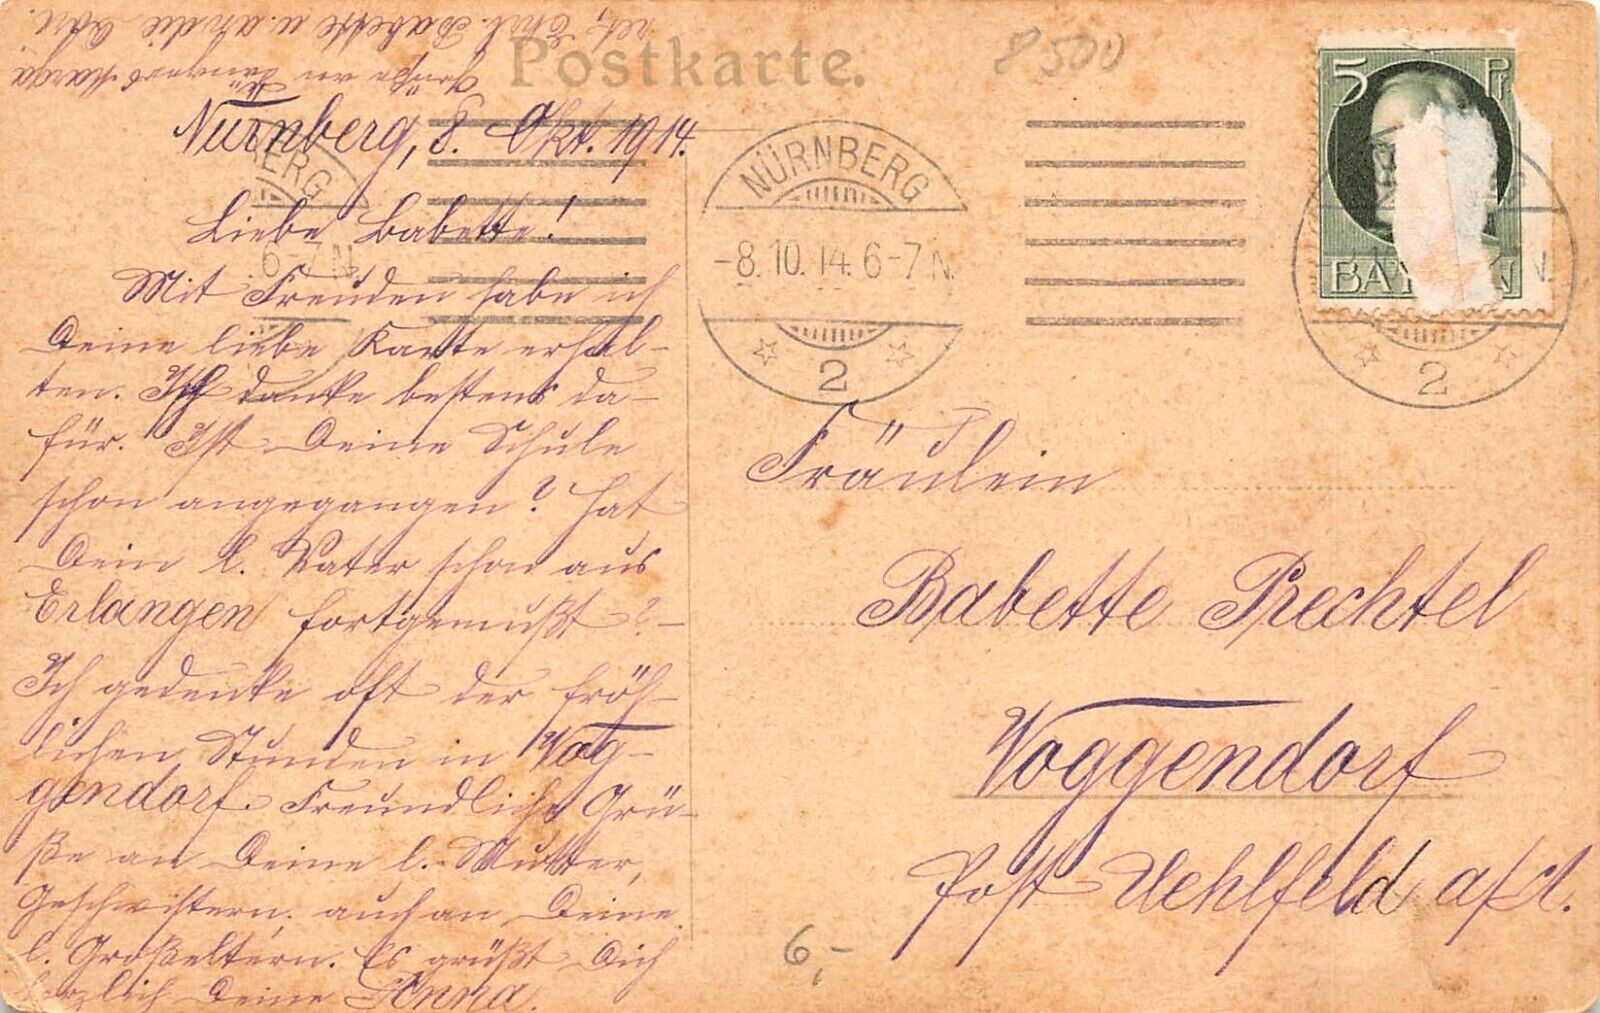 Postkarte.
8500
Grüße an Dängers Marga
ret, Ehrl. Babette u. an die Adre.
Nürnberg, 8. Okt. 1914.
Liebe Babette!
Mit Freuden habe ich
Deine liebe Karte erhal-
ten. Ich danke bestens da-
für. Ist Deine Schule
schon angegangen? Hat
Dein l. Vater schon aus
Erlangen fortgemußt? -
Ich gedenke oft der fröh-
lichen Stunden in Vog-
gendorf. Freundliche Grü-
ße an Deine l. Mutter,
Geschwistern, auch an Deine
l. Großeltern. Es grüßt Dich
herzlich Deine Anna.
NÜRNBERG
-8.10.14. 6-7 N.
2
ERG
6-7 N.
5 Pf
BAYERN
N.
2
Fräulein
Babette Prechtel
Voggendorf
Post Uehlfeld a/A.
6,-